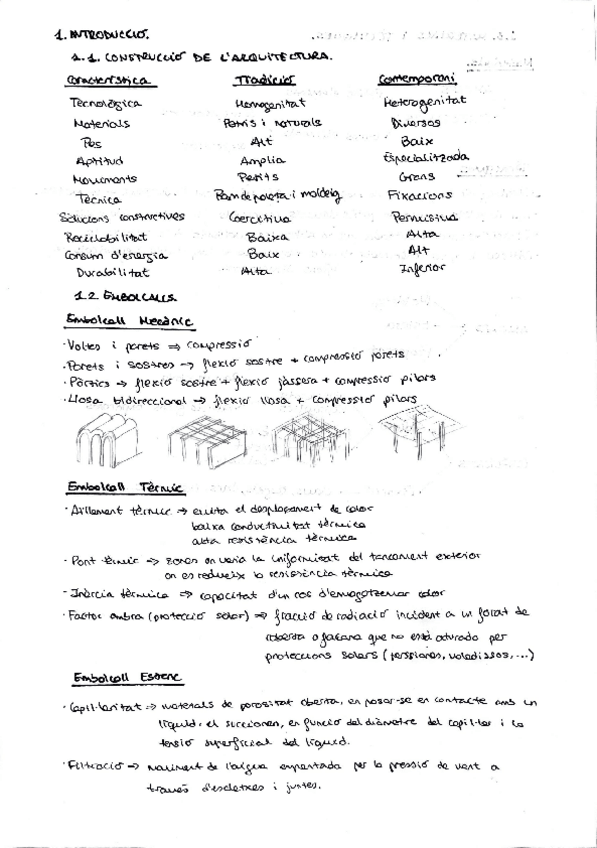 1. INTRODUCCIÓ.
1.1. CONSTRUCCIÓ DE L'ARQUITECTURA.
Característica Tradició Contemporani
Tecnològica Homogenitat Heterogenitat
Materials Petris i naturals Diversos
Pes Alt Baix
Aptitud Amplia Especialitzada
Moviments Petits Grans
Tècnica i moldeig Fixacions
Solucions constructives Coercitiva Permissiva
Reciclabilitat Baixa Alta
Consum d'energia Baix Alt
Durabilitat Alta Inferior
1.2 EMBOLCALLS.
Embolcall Mecànic
· Voltes i parets ⇒ compressió
· Parets i sostres → flexió sostre + compressió parets
· Pòrtics → flexió sostre + flexió jàssera + compressió pilars
· Llosa bidireccional → flexió llosa + compressió pilars
Embolcall Tèrmic
· Aïllament tèrmic → evita el desplaçament de calor
baixa conductivitat tèrmica
alta resistència tèrmica
· Pont tèrmic → zones on varia la uniformitat del tancament exterior
on es redueix la resistència tèrmica
· Inèrcia tèrmica → capacitat d'un cos d'emmagatzemar calor
· Factor ombra (protecció solar) ⇒ fracció de radiació incident a un forat de
coberta o façana que no està aturado per
proteccions solars (persianes, voladissos, ...)
Embolcall Estanc
· Capil·laritat → materials de porositat oberta, en posar-se en contacte amb un
líquid, el succionen, en funció del diàmetre del capil·lar i la
tensió superficial del líquid.
· Filtració → moviment de l'aigua empentada per la pressió de vent a
través d'escletxes i juntes.